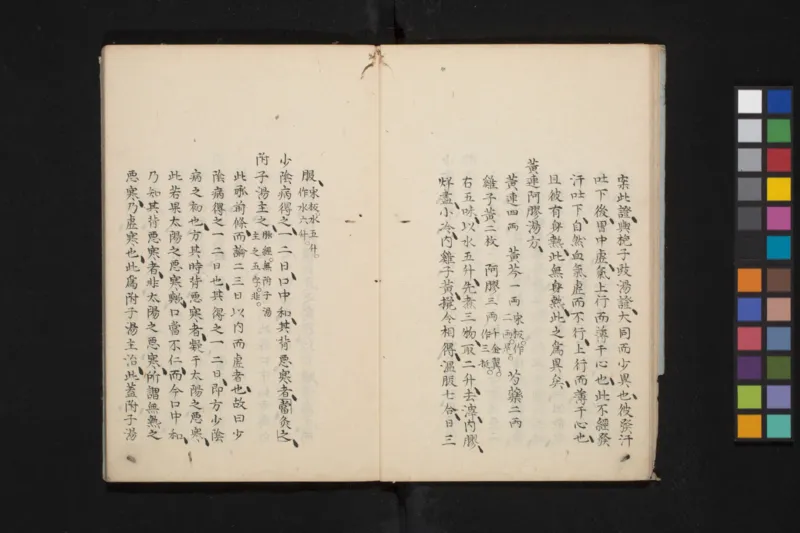 案此證與梔子豉湯證大同而少異也彼發汗
吐下後胃中虛氣上行而薄于心也此不經發
汗吐下自然血氣虛而不行上行而薄于心也
且彼有身熱此無身熱此之為異矣
黃連阿膠湯方
黃連四兩 黃芩一兩 宋板作二兩 芍藥二兩
雞子黃二枚 阿膠三兩 作三挺
右五味以水五升先煮三物取二升去滓內膠
烊盡小冷內雞子黃攪令相得溫服七合日三
服 宋板水五升作水六升
少陰病得之一二日口中和其背惡寒者當灸之
附子湯主之 脉經無附子湯主之五字非
此承前條而論二三日以內而虛者也故曰少
陰病得之一二日也其得之一二日即方少陰
病之初也方其時背惡寒者疑于太陽之惡寒
此若果太陽之惡寒口當不仁而今口中和
乃知其背惡寒者非太陽之惡寒所謂無熱之
惡寒乃虛寒也此為附子湯主治此蓋附子湯